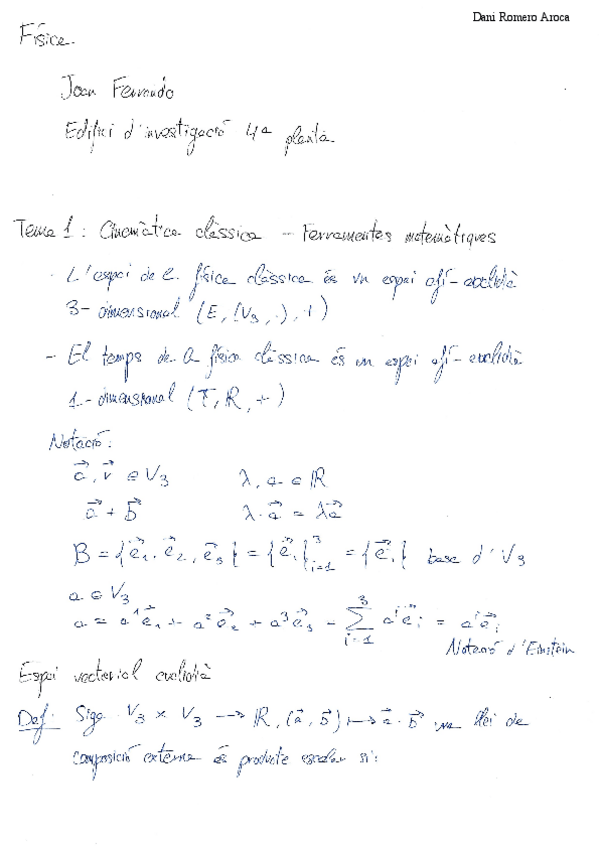 Dani Romero Aroca
Física.
Joan Ferrando
Edifici d'investigació 4ª planta
Tema 1: Cinemàtica clàssica - Ferramentes matemàtiques
· L'espai de la física clàssica és un espai afí-euclidià
3-dimensional (E, V₃, ·), +)
- El temps de la física clàssica és un espai afí-euclidià
1-dimensional (T, ℝ, +)
Notació:
a⃗, v⃗ ∈ V₃ λ, a ∈ ℝ
a⃗ + b⃗ λ·a⃗ = λa⃗
B = {e⃗₁, e⃗₂, e⃗₃} = {e⃗ᵢ}³ᵢ₌₁ = {e⃗ᵢ} base d'V₃
a ∈ V₃
a = a¹e⃗₁ + a²e⃗₂ + a³e⃗₃ - ∑³ᵢ₌₁ aⁱe⃗ᵢ = aⁱe⃗ᵢ
Notació d'Einstein
Espai vectorial euclidià
Def: Siga V₃ × V₃ → ℝ, (a⃗, b⃗) ↦ a⃗·b⃗ una llei de
composició externa és producte escalar si: